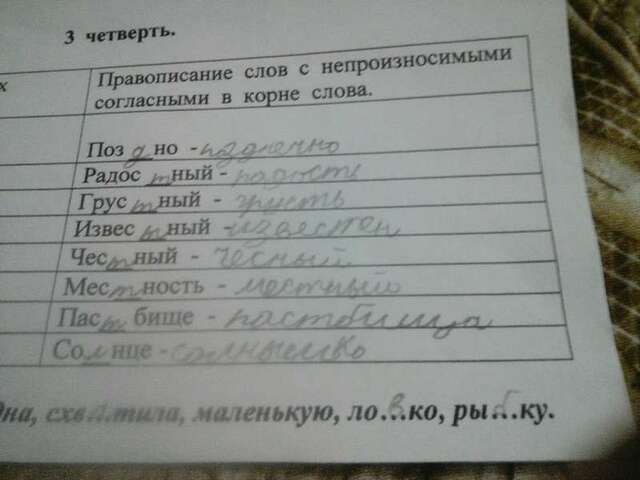 3 четверть.
х
Правописание слов с непроизносимыми
согласными в корне слова.
Поздно -
Радостный - радость
Грустный - грусть
Известный - известен
Честный - чесный
Местность - местный
Пастбище - пастбища
Солнце - солнышко
дна, схватила, маленькую, ло в ко, ры б ку.